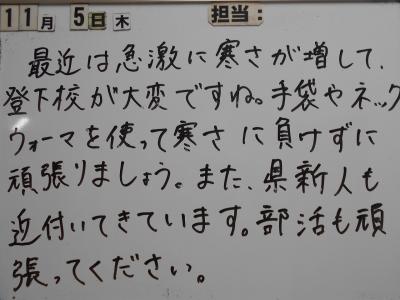 11月 5日 木 担当:
最近は急激に寒さが増して、
登下校が大変ですね。手袋やネック
ウォーマを使って寒さに負けずに
頑張りましょう。また、県新人も
近付いてきています。部活も頑
張ってください。